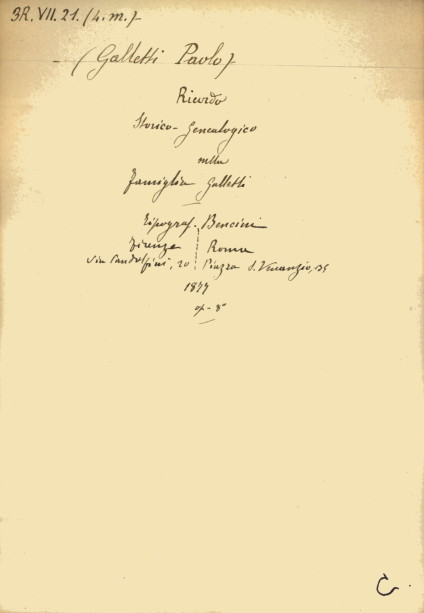 BR. VII. 21. (4. m.)
(Galletti Paolo)
Ricordo
Storico-Genealogico
nella
Famiglia Galletti
Tipograf. Bencini
Firenze | Roma
Via Pandolfini, 20 | Piazza S. Venanzio, 35
1877
op-8°